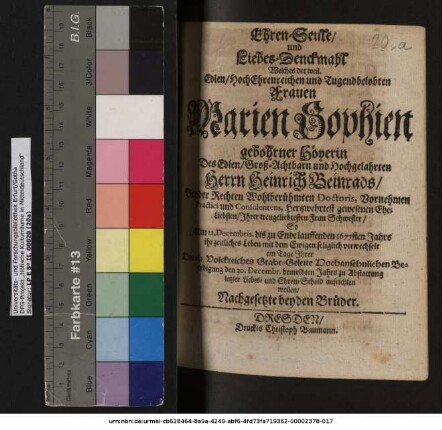 Ehren-Seule/
und
Liebes-Denckmahl
Welches der weil.
Edlen/ HochEhrenreichen und Tugendbelobten
Frauen
Marien Sophien
gebohrner Höperin
Des Edlen/ Groß-Achtbarn und Hochgelahrten
Herrn Heinrich Weinrads/
Beyder Rechten Wohlberühmten Doctoris, Vornehmen
Practici und Consulentens, Hertzwerthest gewesenen Ehe-
Liebsten/ Ihrer treugeliebtesten Frau Schwester/
So
Decembris, dis zu Ende lauffenden 1677sten Jahrs
ihr zeitliches Leben mit dem Ewigen seliglich verwechselt
am Tage Ihrer
Durch Volckreiches Grabe-Geleite Hochansehnlichen Be-
erdigung den 30. Decembr. bemeldten Jahrs zu Abstattung
letzter Liebes- und Ehren-Schuld aufrichten
wollen/
Nachgesetzte beyden Brüder.
DRESDEN/
Druckts Christoph Baumann.
B.I.G.
Farbkarte #13
Black
3/Color
White
Magenta
Red
Yellow
Green
Cyan
Blue
Centimetres
Universitäts- und Forschungsbibliothek Erfurt/Gotha
DFG-Projekt "Höfische Kulturräume in Mitteldeutschland"
urn:nbn:de:urmel-cb628464-8a9a-4249-abf6-4fd73fa719362-00002378-017